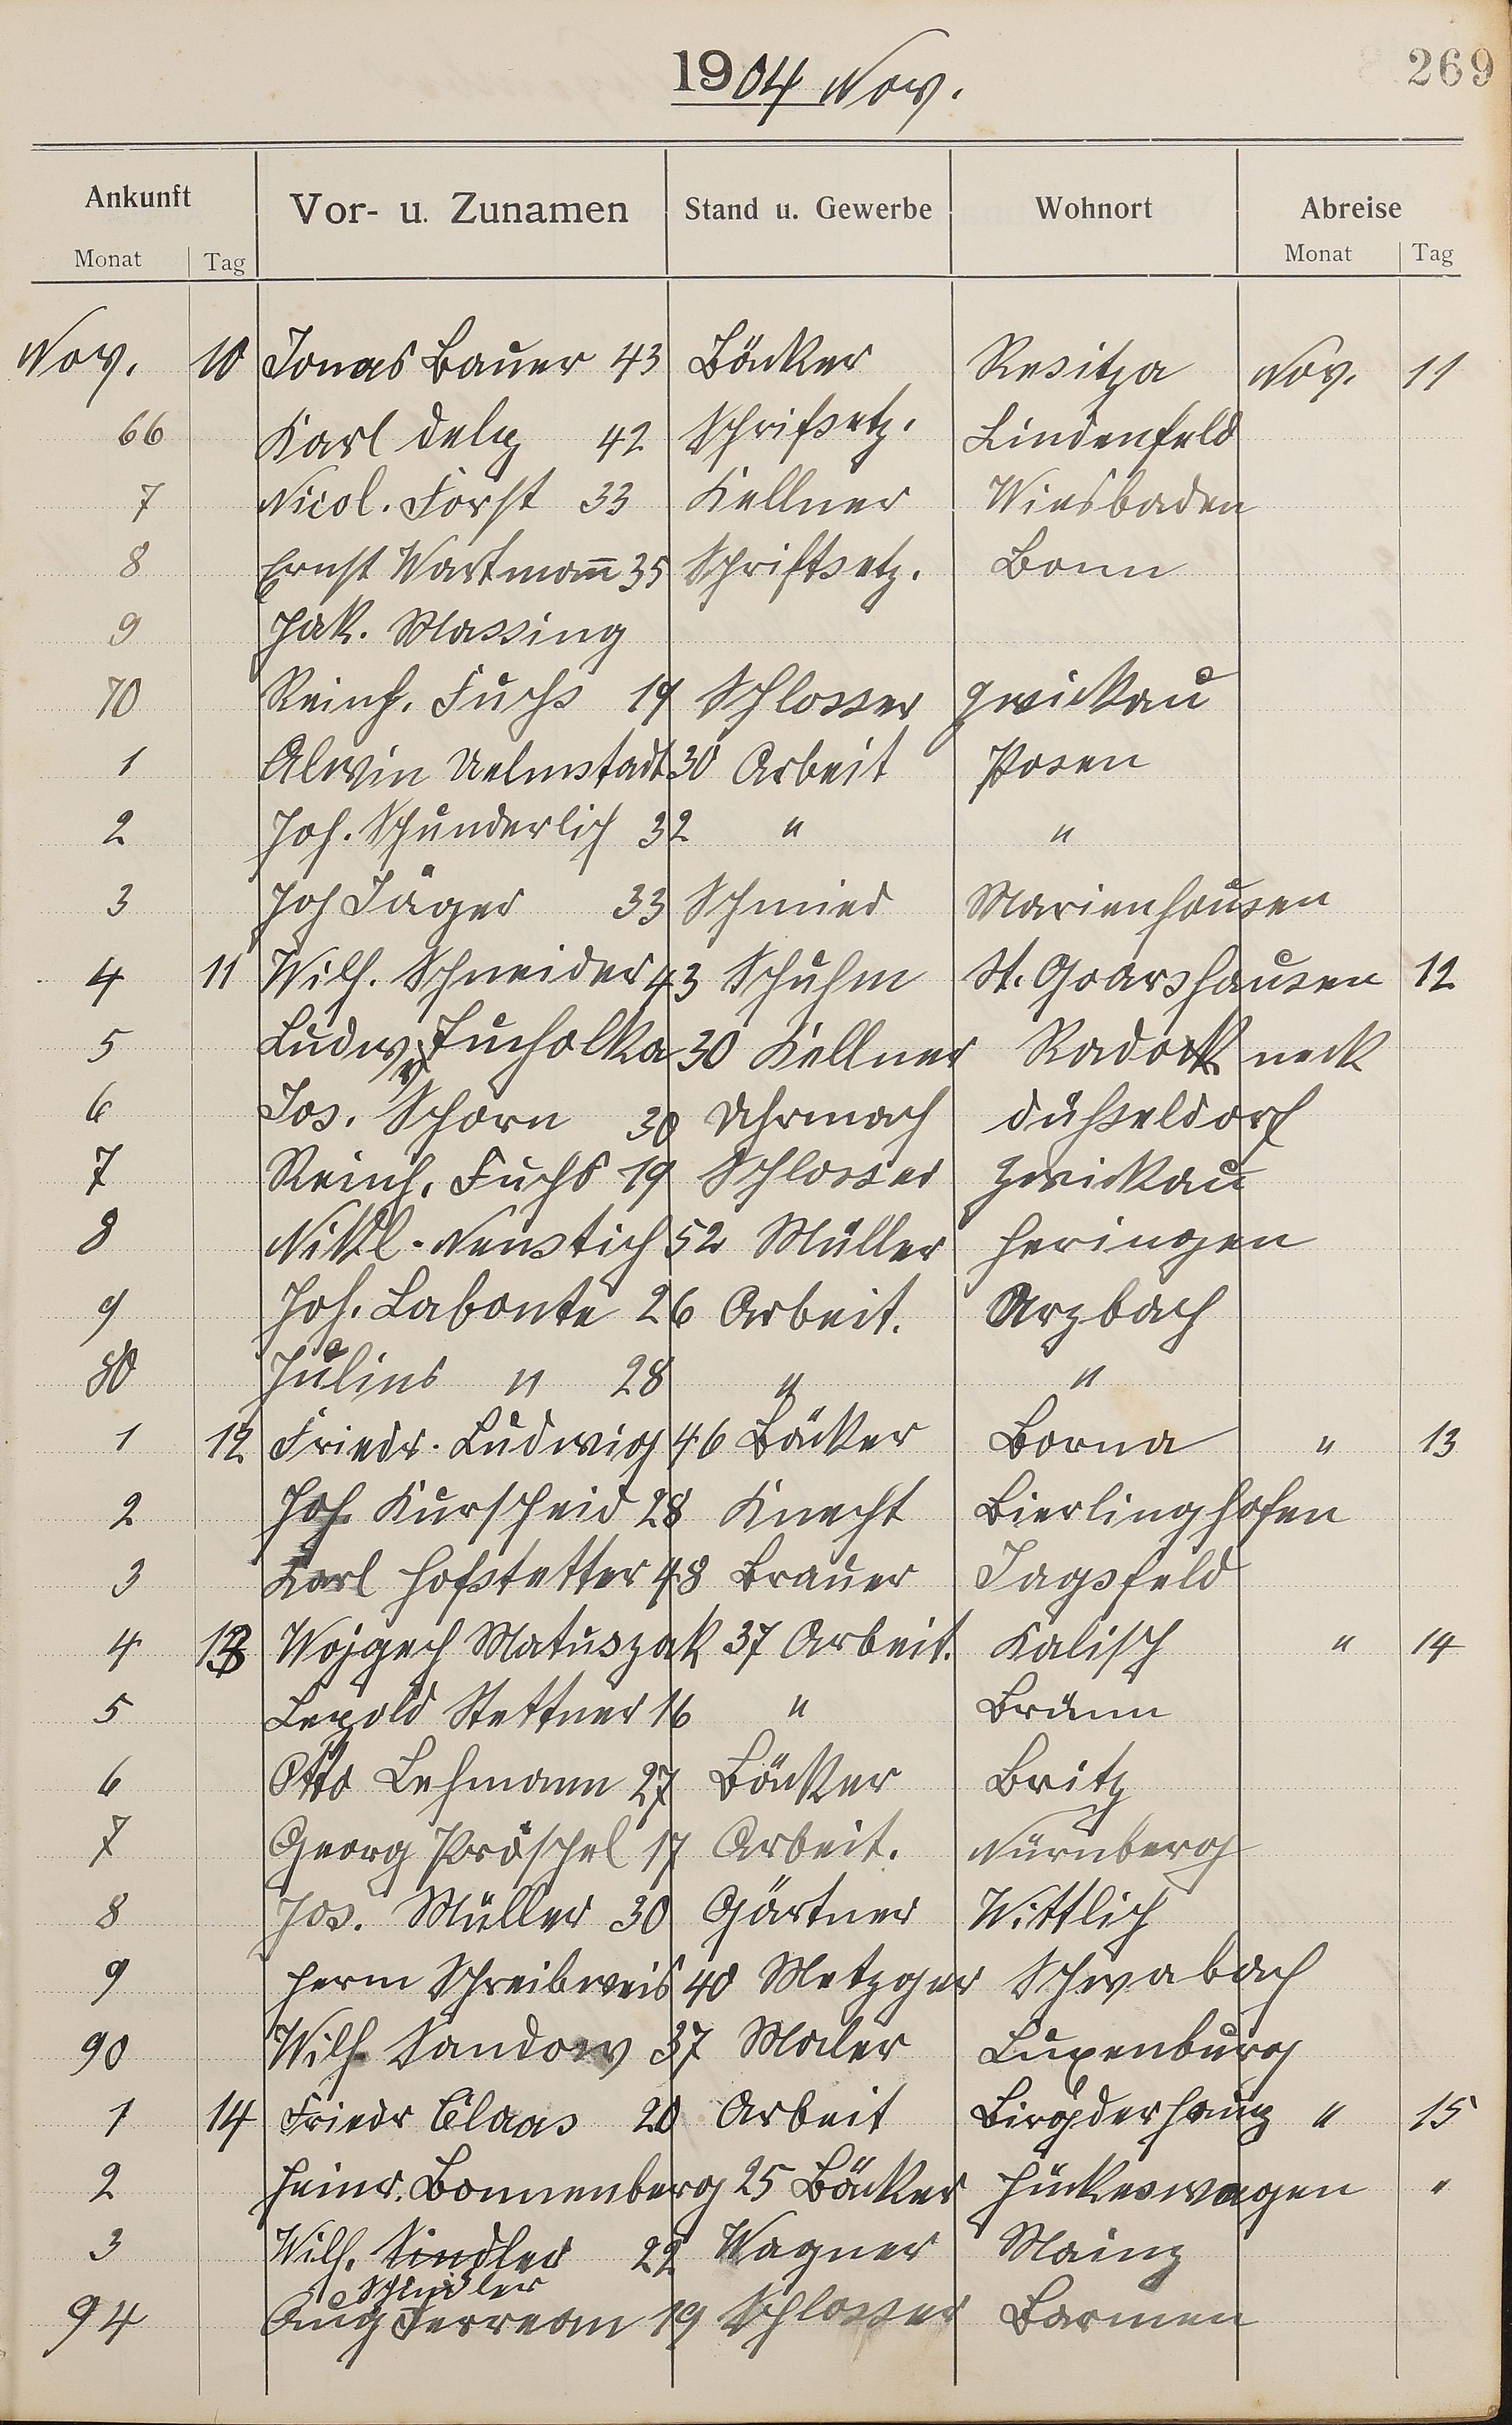 1904 Nov.
269
Ankunft Vor- u. Zunamen Stand u. Gewerbe Wohnort Abreise
Monat Tag Monat Tag
Nov. 10 Jonas Bauer 43 Bäcker Resitza Nov. 11
66 Karl Delp 42 Schrifsetz. Lindenfeld
7 Nicol. Forst 33 Kellner Wiesbaden
8 Ernst Wartmañ 35 Schriftsetz. Bonn
9 Jak. Massing
70 Reinh. Fuchs 19 Schlosser Zwickau
1 Alwin Uelmstadt 30 Arbeit Posen
2 Joh. Schunderlich 32 " "
3 Joh Jäger 33 Schmied Marienhausen
4 11 Wilh. Schneider 43 Schuhm St. Goarshausen 12
5 Ludw. v Tucholka 30 Kellner neck
6 Jos. Schorn 30 Uhrmach Düsseldorf
7 Reinh. Fuchs 19 Schlosser Zwickau
8 Nikl. Neustich 52 Müller Heringen
9 Joh. Labonte 26 Arbeit. Arzbach
80 Julius " 28 " "
1 12 Friedr. Ludwig 46 Bäcker Borna " 13
2 Joh. Kurscheid 28 Knecht Bierlinghofen
3 Karl Hofstetter 48 Brauer Jagsfeld
4 13 Wojzech Matuszak 37 Arbeit. Kalisch " 14
5 Lepold Stettner 16 " Brünn
6 Otto Lehmann 27 Bäcker Britz
7 Georg Pröschel 17 Arbeit. Nürnberg
8 Jos. Müller 30 Gärtner Wittlich
9 Herm Schreibweis 40 Metzger Schwabach
90 Wilh. Sandow 37 Maler Luxenburg
1 14 Friedr Claas 20 Arbeit " 15
2 Heinr. Bonnenberg 25 Bäcker Hückeswagen "
3 Wilh. Sindler 22 Wagner Mainz
Schindler
94 Aug Ferrean 19 Schlosser Barmen